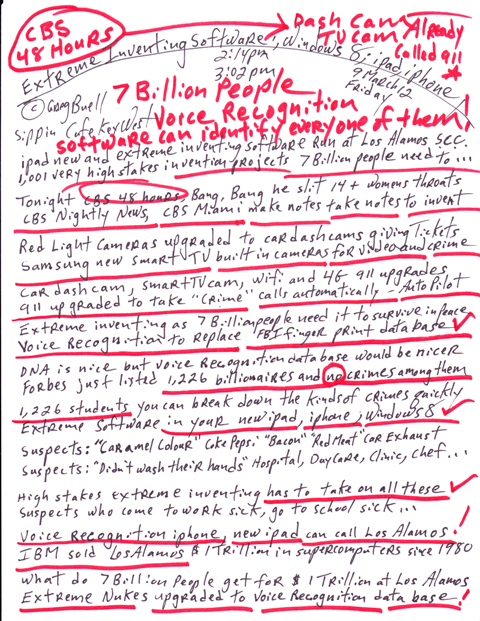 CBS
48 HOURS
Dash Cam Already
TV Cam Called 911
Extreme Inventing Software, Windows 8, ipad, iphone
2:14pm
3:02pm
9 March 12
Friday
© Greg Buell
Sippin Cafe Key West
7 Billion People
Voice Recognition
software can identify everyone of them!
ipad new and extreme inventing software Run at Los Alamos SCC.
1,001 very high stakes invention projects 7 Billion people need to...
Tonight CBS 48 hours, Bang, Bang he slit 14+ womens throats
CBS Nightly News, CBS Miami make notes take notes to invent
Red Light Cameras upgraded to car dash cams giving Tickets
Samsung new smart TV built in cameras for video and crime
Car dash cam, smart TV cam, wifi and 4G 911 upgrades
911 upgraded to take "Crime" calls automatically - Auto Pilot
Extreme inventing as 7 Billion people need it to survive in peace
Voice Recognition to Replace FBI finger print data base
DNA is nice but voice Recognition data base would be nicer
Forbes just listed 1,226 billionaires and no crimes among them
1,226 students you can break down the kinds of crimes quickly
Extreme Software in your new ipad, iphone, Windows 8
Suspects: "Caramel Colour" Coke Pepsi "Bacon" "Red Meat" Car Exhaust
Suspects: "Didn't wash their hands" Hospital, Day Care, Clinic, Chef...
High stakes extreme inventing has to take on all these
Suspects who come to work sick, go to school sick...
Voice Recognition iphone, new ipad can call Los Alamos!
IBM sold Los Alamos $1 Trillion in supercomputers since 1980
What do 7 Billion People get for $1 Trillion at Los Alamos
Extreme Nukes upgraded to Voice Recognition data base!